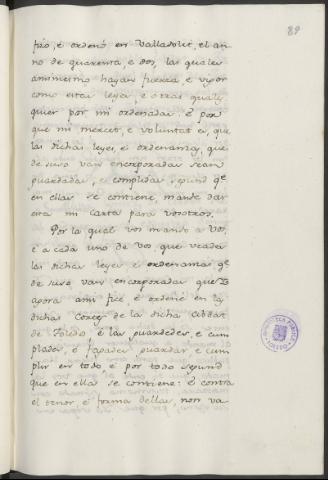 89
fizo, é ordenó en Valladolit, el an-
no de quarenta, e dos, las quales
ansimesmo hayan fuerza, e vigor
como estas leyes, e otras quales
quier por mi ordenadas: e por
que mi mercet, e voluntat es, que
las dichas leyes, e ordenanzas, que
de suso van encorporadas sean
guardadas, e complidas segund q.e
en ellas se contiene, mande dar
esta mi carta para vosotros.
Por la qual vos mando a vos,
e a cada uno de vos que veades
las dichas leyes, e ordenanzas q.e
de suso van encorporadas que Yo
agora ansi fice, e ordené en las
dichas Cortes de la dicha cibdat
de Toledo e las guardedes, e cum
plades, e fagades guardar, e cum
plir en todo e por todo segund
que en ellas se contiene: e contra
el tenor, e forma dellas, non va-